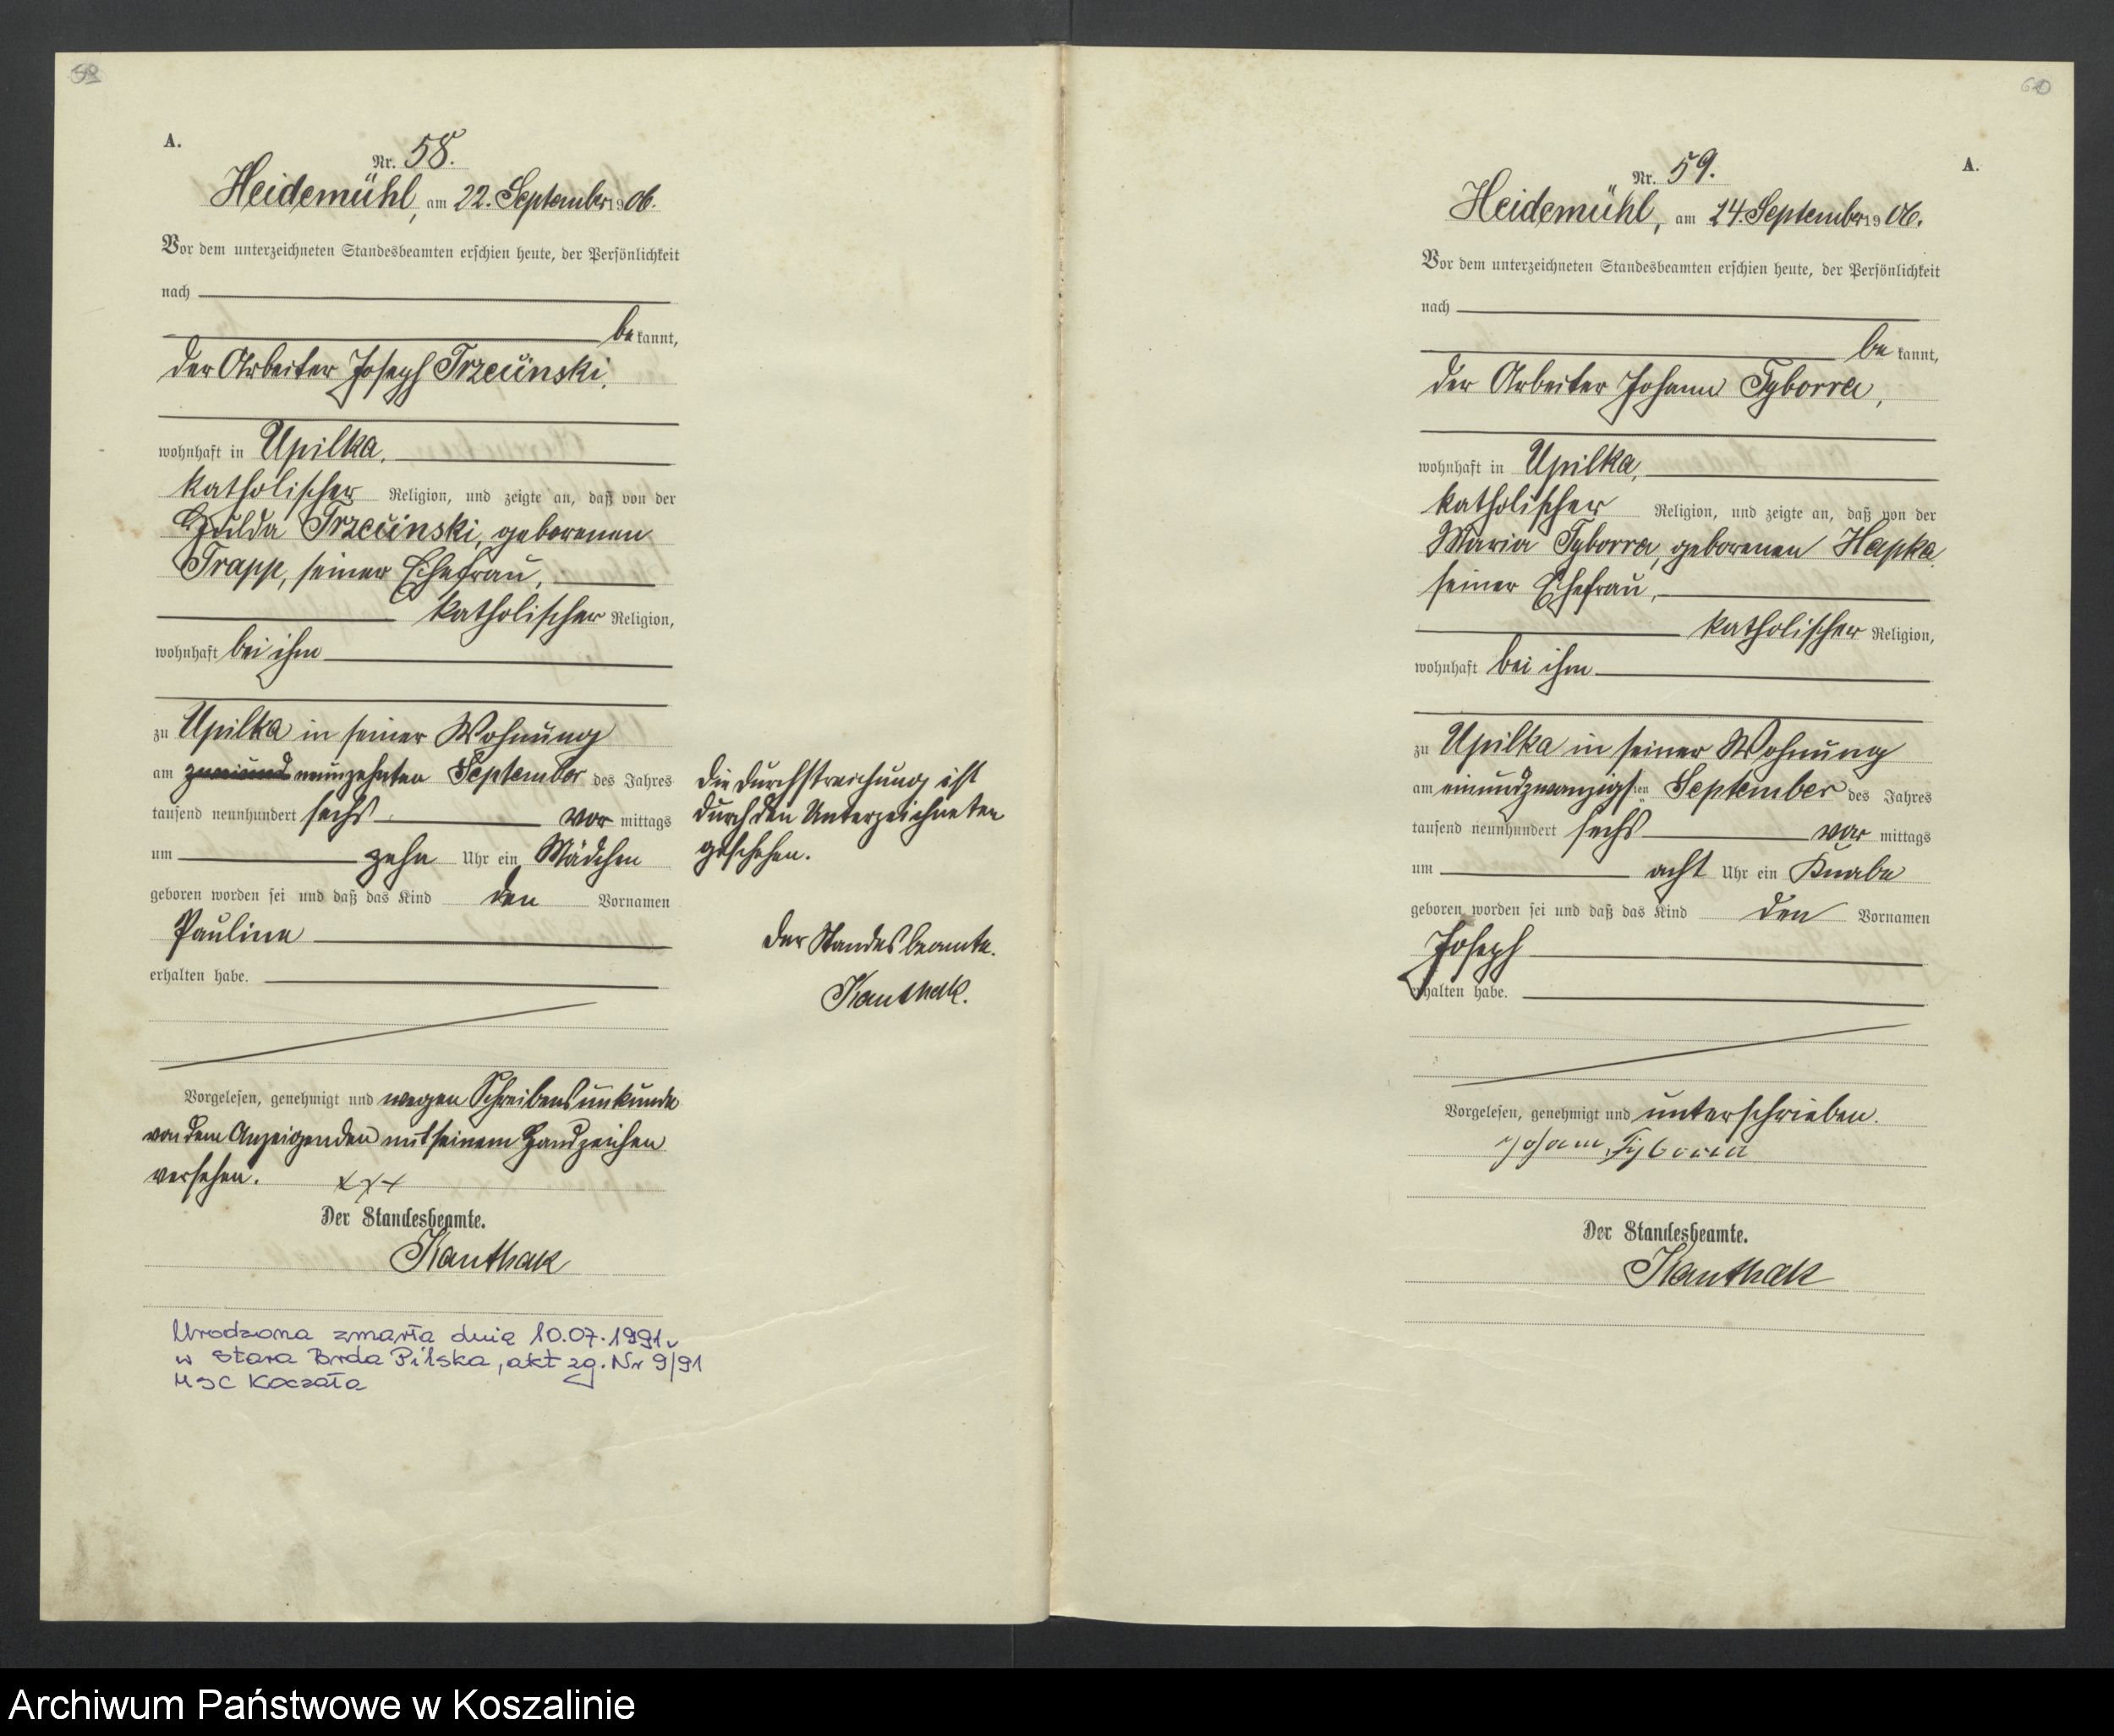 58
A.
Nr. 58.
Heidemühl, am 22. September 1906.
Vor dem unterzeichneten Standesbeamten erschien heute, der Persönlichkeit
nach
bekannt,
der Arbeiter Joseph Trzcinski,
wohnhaft in Upilka,
katholischer Religion, und zeigte an, daß von der
Hulda Trzcinski, geborenen
Trapp, seiner Ehefrau,
katholischer Religion,
wohnhaft bei ihm
zu Upilka in seiner Wohnung
am zweiund neunzehnten September des Jahres
tausend neunhundert sechs vor mittags
um zehn Uhr ein Mädchen
geboren worden sei und daß das Kind den Vornamen
Pauline
erhalten habe.
Vorgelesen, genehmigt und wegen Schreibensunkunde
von dem Anzeigenden mit seinem Handzeichen
versehen. xxx
Der Standesbeamte.
Kanthak
Urodzona zmarła dnia 10.07.1991 r
w Stara Brda Pilska, akt zg. Nr 9/91
USC Koczała
Die Durchstreichung ist
durch den Unterzeichneten
geschehen.
Der Standesbeamte.
Kanthak.
60
A.
Nr. 59.
Heidemühl, am 24. September 1906.
Vor dem unterzeichneten Standesbeamten erschien heute, der Persönlichkeit
nach
bekannt,
der Arbeiter Johann Tyborra,
wohnhaft in Upilka,
katholischer Religion, und zeigte an, daß von der
Maria Tyborra, geborenen Hapka,
seiner Ehefrau,
katholischer Religion,
wohnhaft bei ihm
zu Upilka in seiner Wohnung
am einundzwanzigsten September des Jahres
tausend neunhundert sechs vor mittags
um acht Uhr ein Knabe
geboren worden sei und daß das Kind den Vornamen
Joseph
erhalten habe.
Vorgelesen, genehmigt und unterschrieben.
Johann Tyborra
Der Standesbeamte.
Kanthak
Archiwum Państwowe w Koszalinie